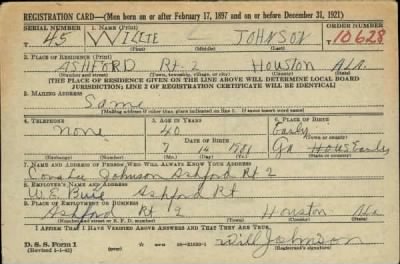 REGISTRATION CARD—(Men born on or after February 17, 1897 and on or before December 31, 1921)
SERIAL NUMBER 1. NAME (Print) ORDER NUMBER
T 45 WILLIE L JOHNSON T10628
(First) (Middle) (Last)
2. PLACE OF RESIDENCE (Print)
ASHFORD Rt. 2 HOUSTON ALA.
(Number and street) (Town, township, village, or city) (County) (State)
[THE PLACE OF RESIDENCE GIVEN ON THE LINE ABOVE WILL DETERMINE LOCAL BOARD
JURISDICTION; LINE 2 OF REGISTRATION CERTIFICATE WILL BE IDENTICAL]
3. MAILING ADDRESS
Same
[Mailing address if other than place indicated on line 2. If same insert word same]
4. TELEPHONE 5. AGE IN YEARS 6. PLACE OF BIRTH
none 40 Early
DATE OF BIRTH (Town or county)
7 14 1901 Ga
(Exchange) (Number) (Mo.) (Day) (Yr.) (State or country)
7. NAME AND ADDRESS OF PERSON WHO WILL ALWAYS KNOW YOUR ADDRESS
Johnson Ashford Rt 2
8. EMPLOYER'S NAME AND ADDRESS
W. E. Ashford Rt
9. PLACE OF EMPLOYMENT OR BUSINESS
Ashford Rt 2 Houston Ala
(Number and street or R. F. D. number) (Town) (County) (State)
I AFFIRM THAT I HAVE VERIFIED ABOVE ANSWERS AND THAT THEY ARE TRUE.
D. S. S. Form 1
(Revised 1-1-42) Will Johnson
(Registrant's signature)